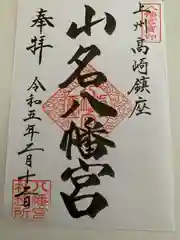 上州高崎鎮座
山名八幡宮
奉拝
令和五年三月十二日
八幡宮
社務所